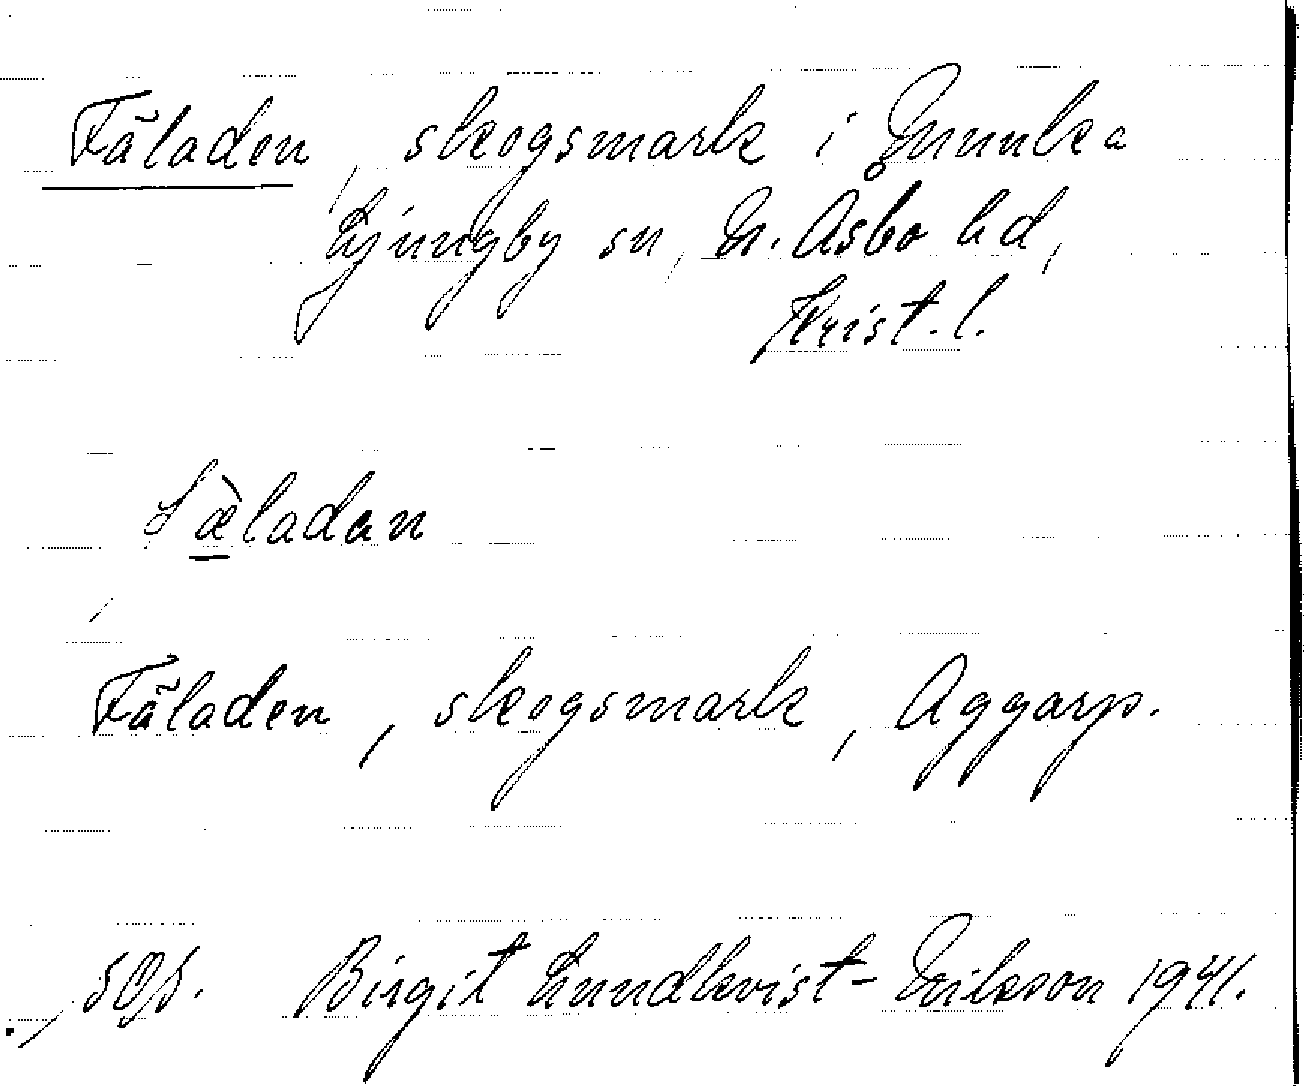 Fäladen, skogsmark i Munka
Ljungby sn, N. Åsbo hd,
Krist. l.
fæ̀ladan
Fäladen, skogsmark, Aggarp.
Birgit Lundkvist-Erikson 1941.